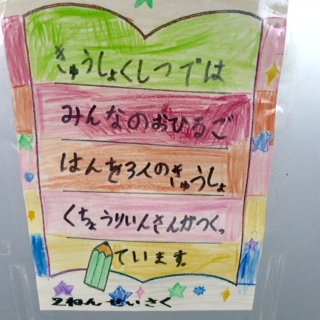 きゅうしょくしつでは
みんなのおひるご
はんを3人のきゅうしょ
くちょうりいんさんがつくっ
ています。
2ねん せいさく